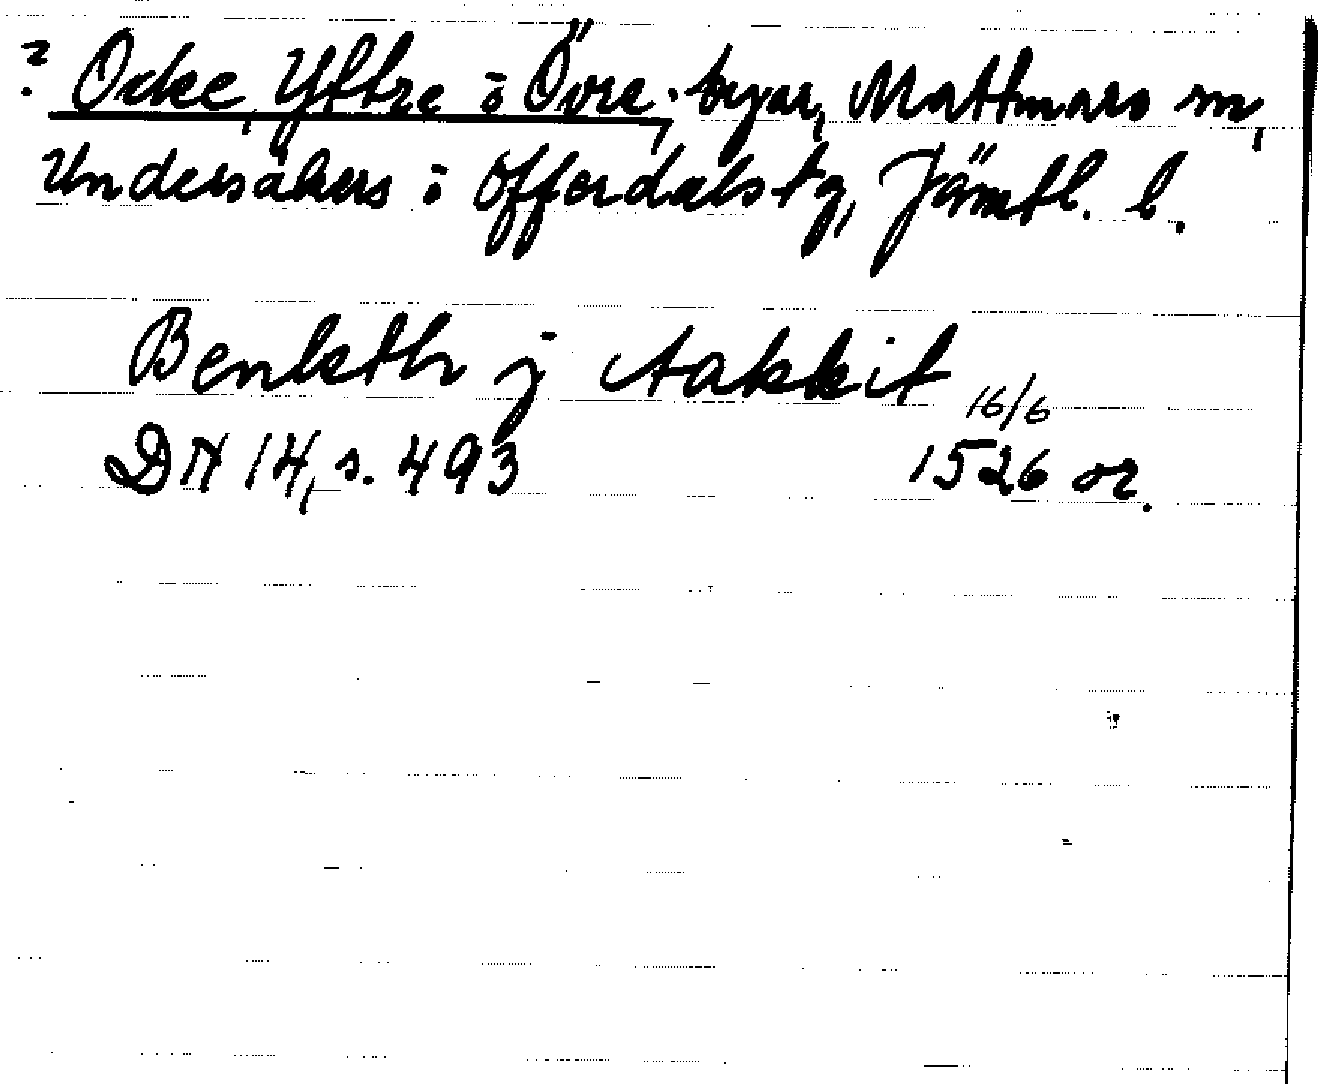 ? Ocke, Yttre o Övre, byar, Mattmars sn,
Undersåkers o Offerdals tg, Jämtl. l.
Benkth j Aakkit 16/6
DN 14, s. 493 1526 or.